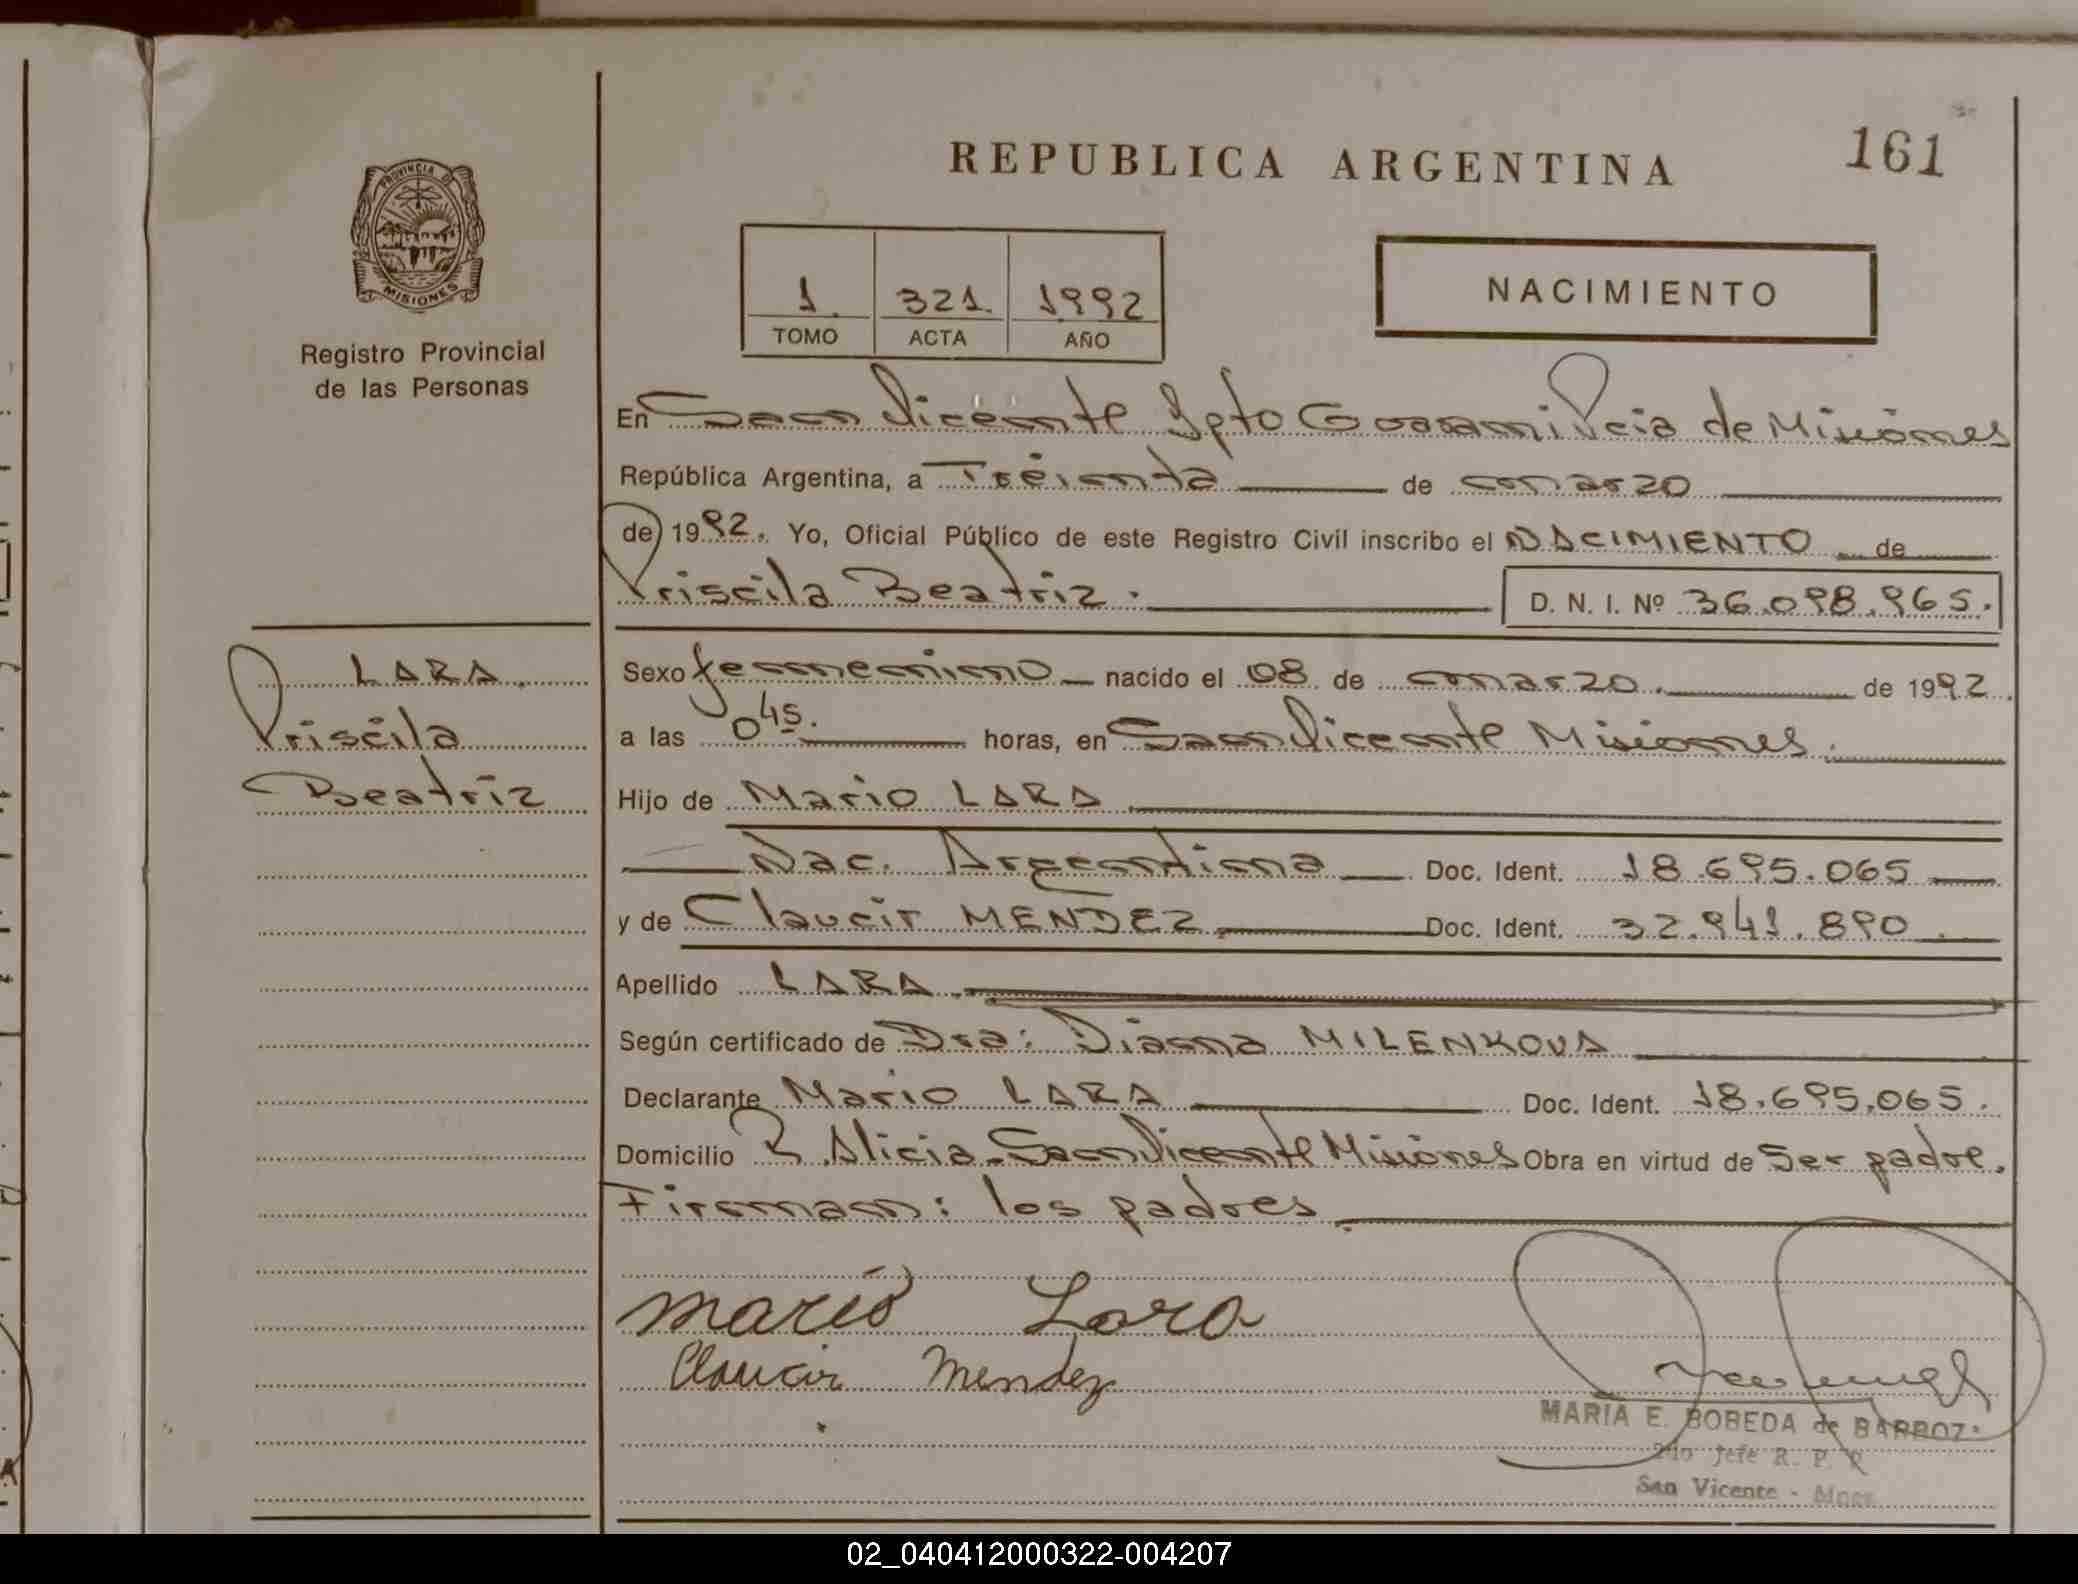 REPUBLICA ARGENTINA
161
PROVINCIA DE
MISIONES
Registro Provincial
de las Personas
1. 321. 1992
TOMO ACTA AÑO
NACIMIENTO
En San Vicente Dpto Guarani Pcia de Misiones
República Argentina, a Treinta de marzo
de 1992. Yo, Oficial Público de este Registro Civil inscribo el NACIMIENTO de
Priscila Beatriz. D. N. I. Nº 36.098.965.
LARA
Priscila
Beatriz
Sexo femenino nacido el 08 de marzo. de 1992.
a las 0 45. horas, en San Vicente Misiones.
Hijo de Mario LARA
Nac. Argentina Doc. Ident. 18.695.065
y de Claucir MENDEZ Doc. Ident. 32.941.890
Apellido LARA
Según certificado de Dra: Diana MILENKOVA
Declarante Mario LARA Doc. Ident. 18.695.065.
Domicilio B. Alicia-San Vicente Misiones Obra en virtud de Ser padre.
Firman: los padres
Mario Lara
Claucir Mendez
MARIA E. BOBEDA de BARBOZA
2do Jefe R. P. P.
San Vicente - Mnes.
02_040412000322-004207